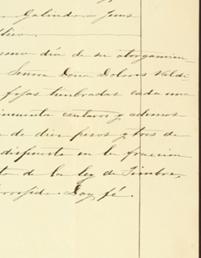 Galindo
mismo día de su otorgamien
Señora Doña Dolores Valdi
fojas timbradas cada una
cincuenta centavos y ademas
de diez pesos y tres de
dispuesto en la fraccion
de la ley de Timbre,
Doy fé.